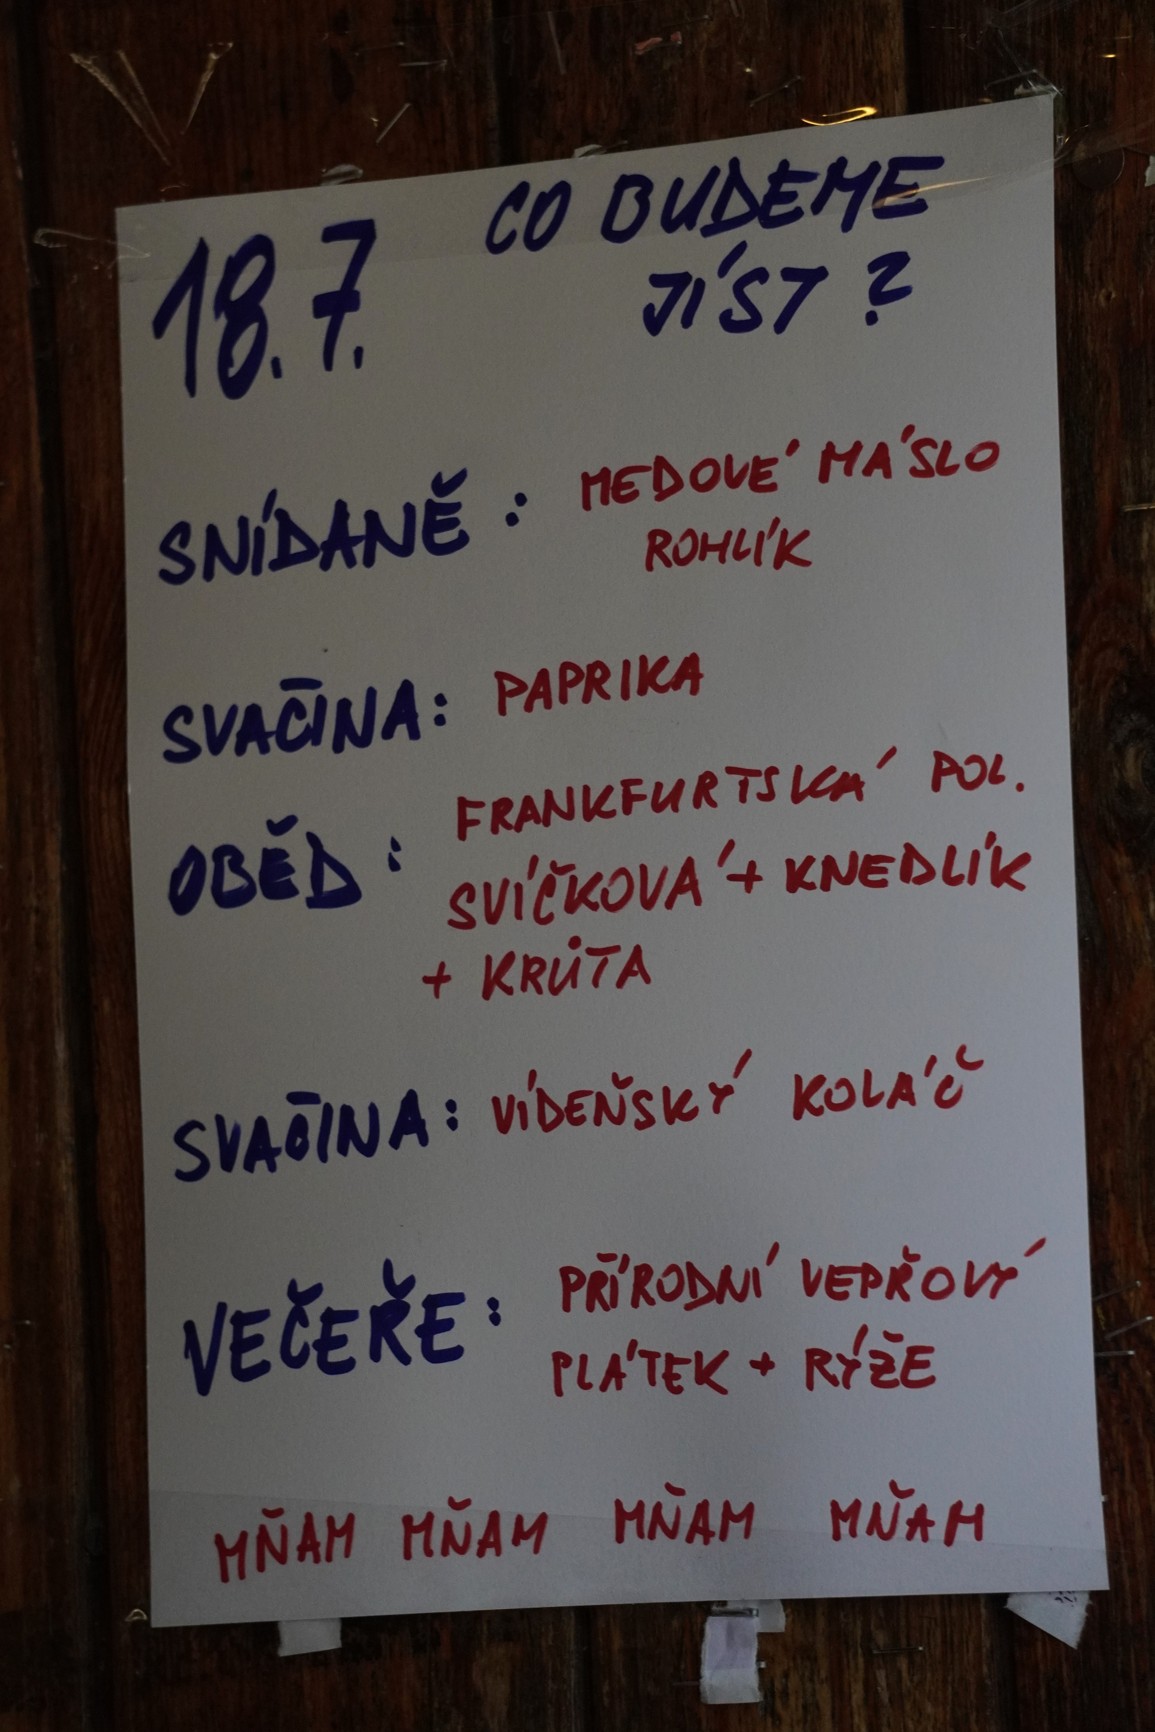 18.7. CO BUDEME
JÍST?
SNÍDANĚ: MEDOVÉ MÁSLO
ROHLÍK
SVAČINA: PAPRIKA
OBĚD: FRANKFURTSKÁ POL.
SVÍČKOVÁ + KNEDLÍK
+ KRŮTA
SVAČINA: VÍDEŇSKÝ KOLÁČ
VEČEŘE: PŘÍRODNÍ VEPŘOVÝ
PLÁTEK + RÝŽE
MŇAM MŇAM MŇAM MŇAM